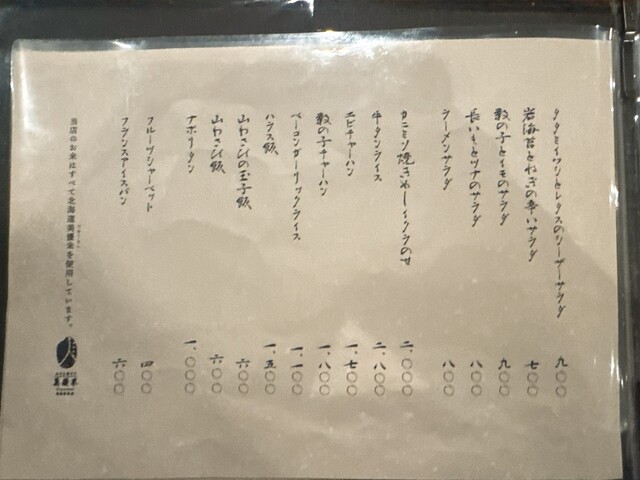 タタミイワシとレタスのシーザーサラダ 九〇〇
岩海苔とねぎの辛いサラダ 七〇〇
数の子とイモのサラダ 九〇〇
長いもとツナのサラダ 八〇〇
ラーメンサラダ 八〇〇
カニミソ焼きめし イクラのせ 二、〇〇〇
牛タンライス 二、八〇〇
エビチャーハン 一、七〇〇
数の子チャーハン 一、八〇〇
ベーコンガーリックライス 一、一〇〇
ハラス飯 一、五〇〇
山わさびの玉子飯 六〇〇
山わさび飯 六〇〇
ナポリタン 一、〇〇〇
フルーツシャーベット 四〇〇
フランスアイスパン 六〇〇
当店のお米はすべて北海道美優米を使用しています。
美優米